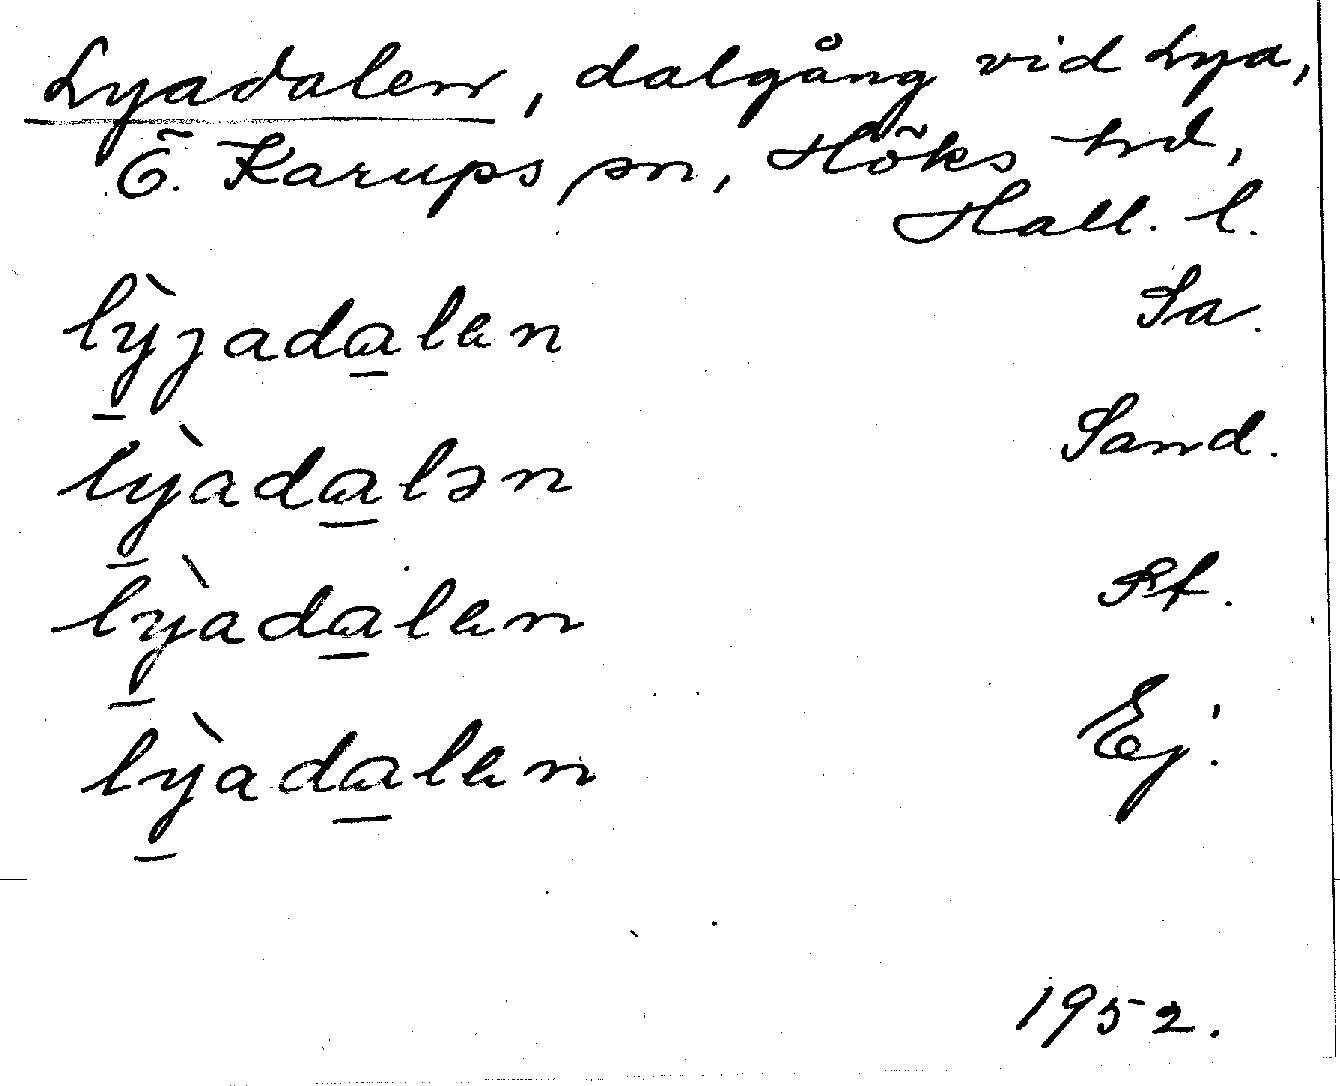 Lyadalen, dalgång vid Lya,
Ö. Karups sn, Höks hd,
Hall. l.
lỳjadalen Sa.
lỳadalən Sand.
lỳadalen
lỳadalen Ej.
1952.